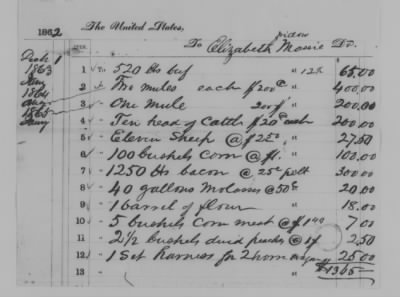 1862 The United States,
widow
ITEM. To Elizabeth Massie Dr.
Dech 1
1863
1864
1865
1 To 520 lbs beef " 12½ 65.00
2 " Two mules each $200 " 400.00
3 " One Mule 200$ " 200.00
4 " Ten head of Cattle $20 each 200.00
5 " Eleven Sheep @ $2.50 " 27.50
6 " 100 bushels Corn @ $1. " 100.00
7 " 1250 lbs bacon @ 25c 300.00
8 " 40 gallons Molasses @ 50c 20.00
9 " 1 barrel of flour " 18.00
10 " 5 bushels Corn meal @ $1.40 7.00
11 " 2½ bushels dried peaches @ 1$ 2.50
12 " 1 Set harness for 2 horse 25.00
13 $1365.—